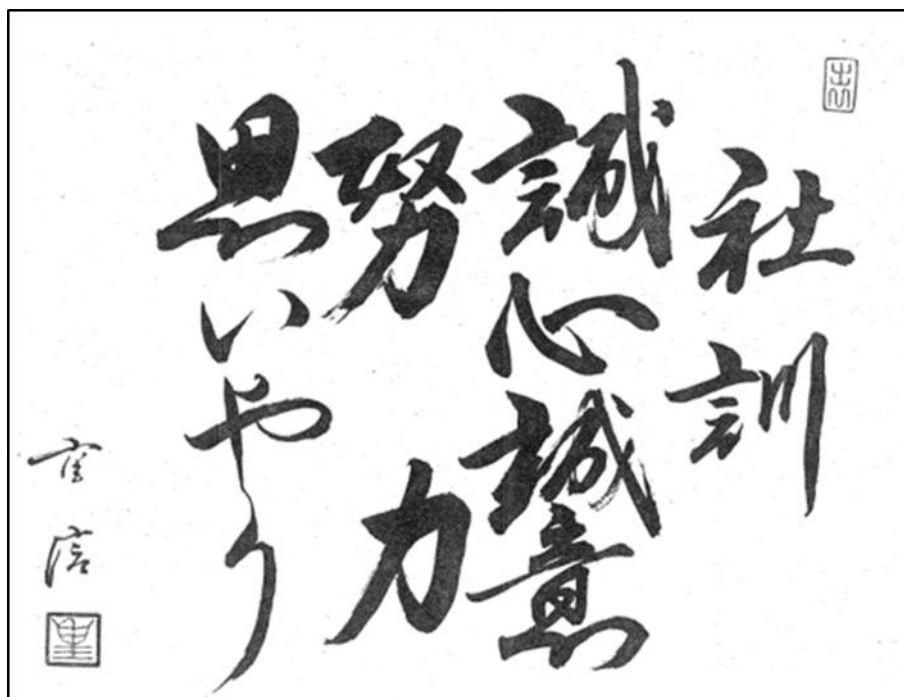 社訓
誠心誠意
努力
思いやり